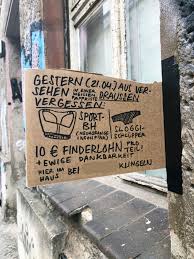 GESTERN (21.04) AUS VER-
SEHEN IN EINER WEISSEN PAPPKISTE DRAUSSEN
VERGESSEN:
SPORT-
BH
SLOGGI-
SCHLÜPPER
10 € FINDERLOHN PRO TEIL!
+ EWIGE DANKBARKEIT
HIER IM HAUS BEI KLINGELN